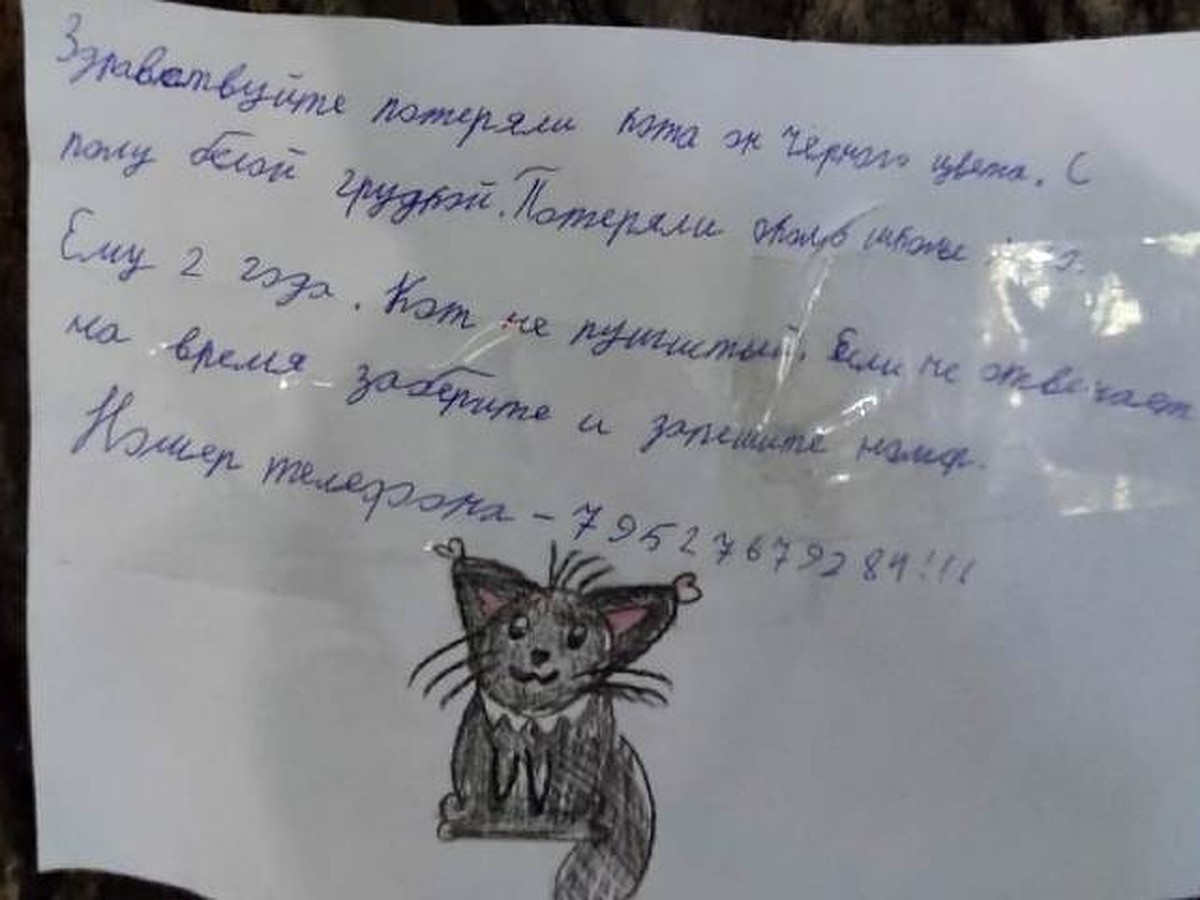 Здравствуйте потеряли кота он черного цвета. С
полу белой грудкой. Потеряли около школы
Ему 2 года. Кот не пушистый. Если не отвечаем
на время заберите и запешите намор.
Номер телефона - 79527679284!!!